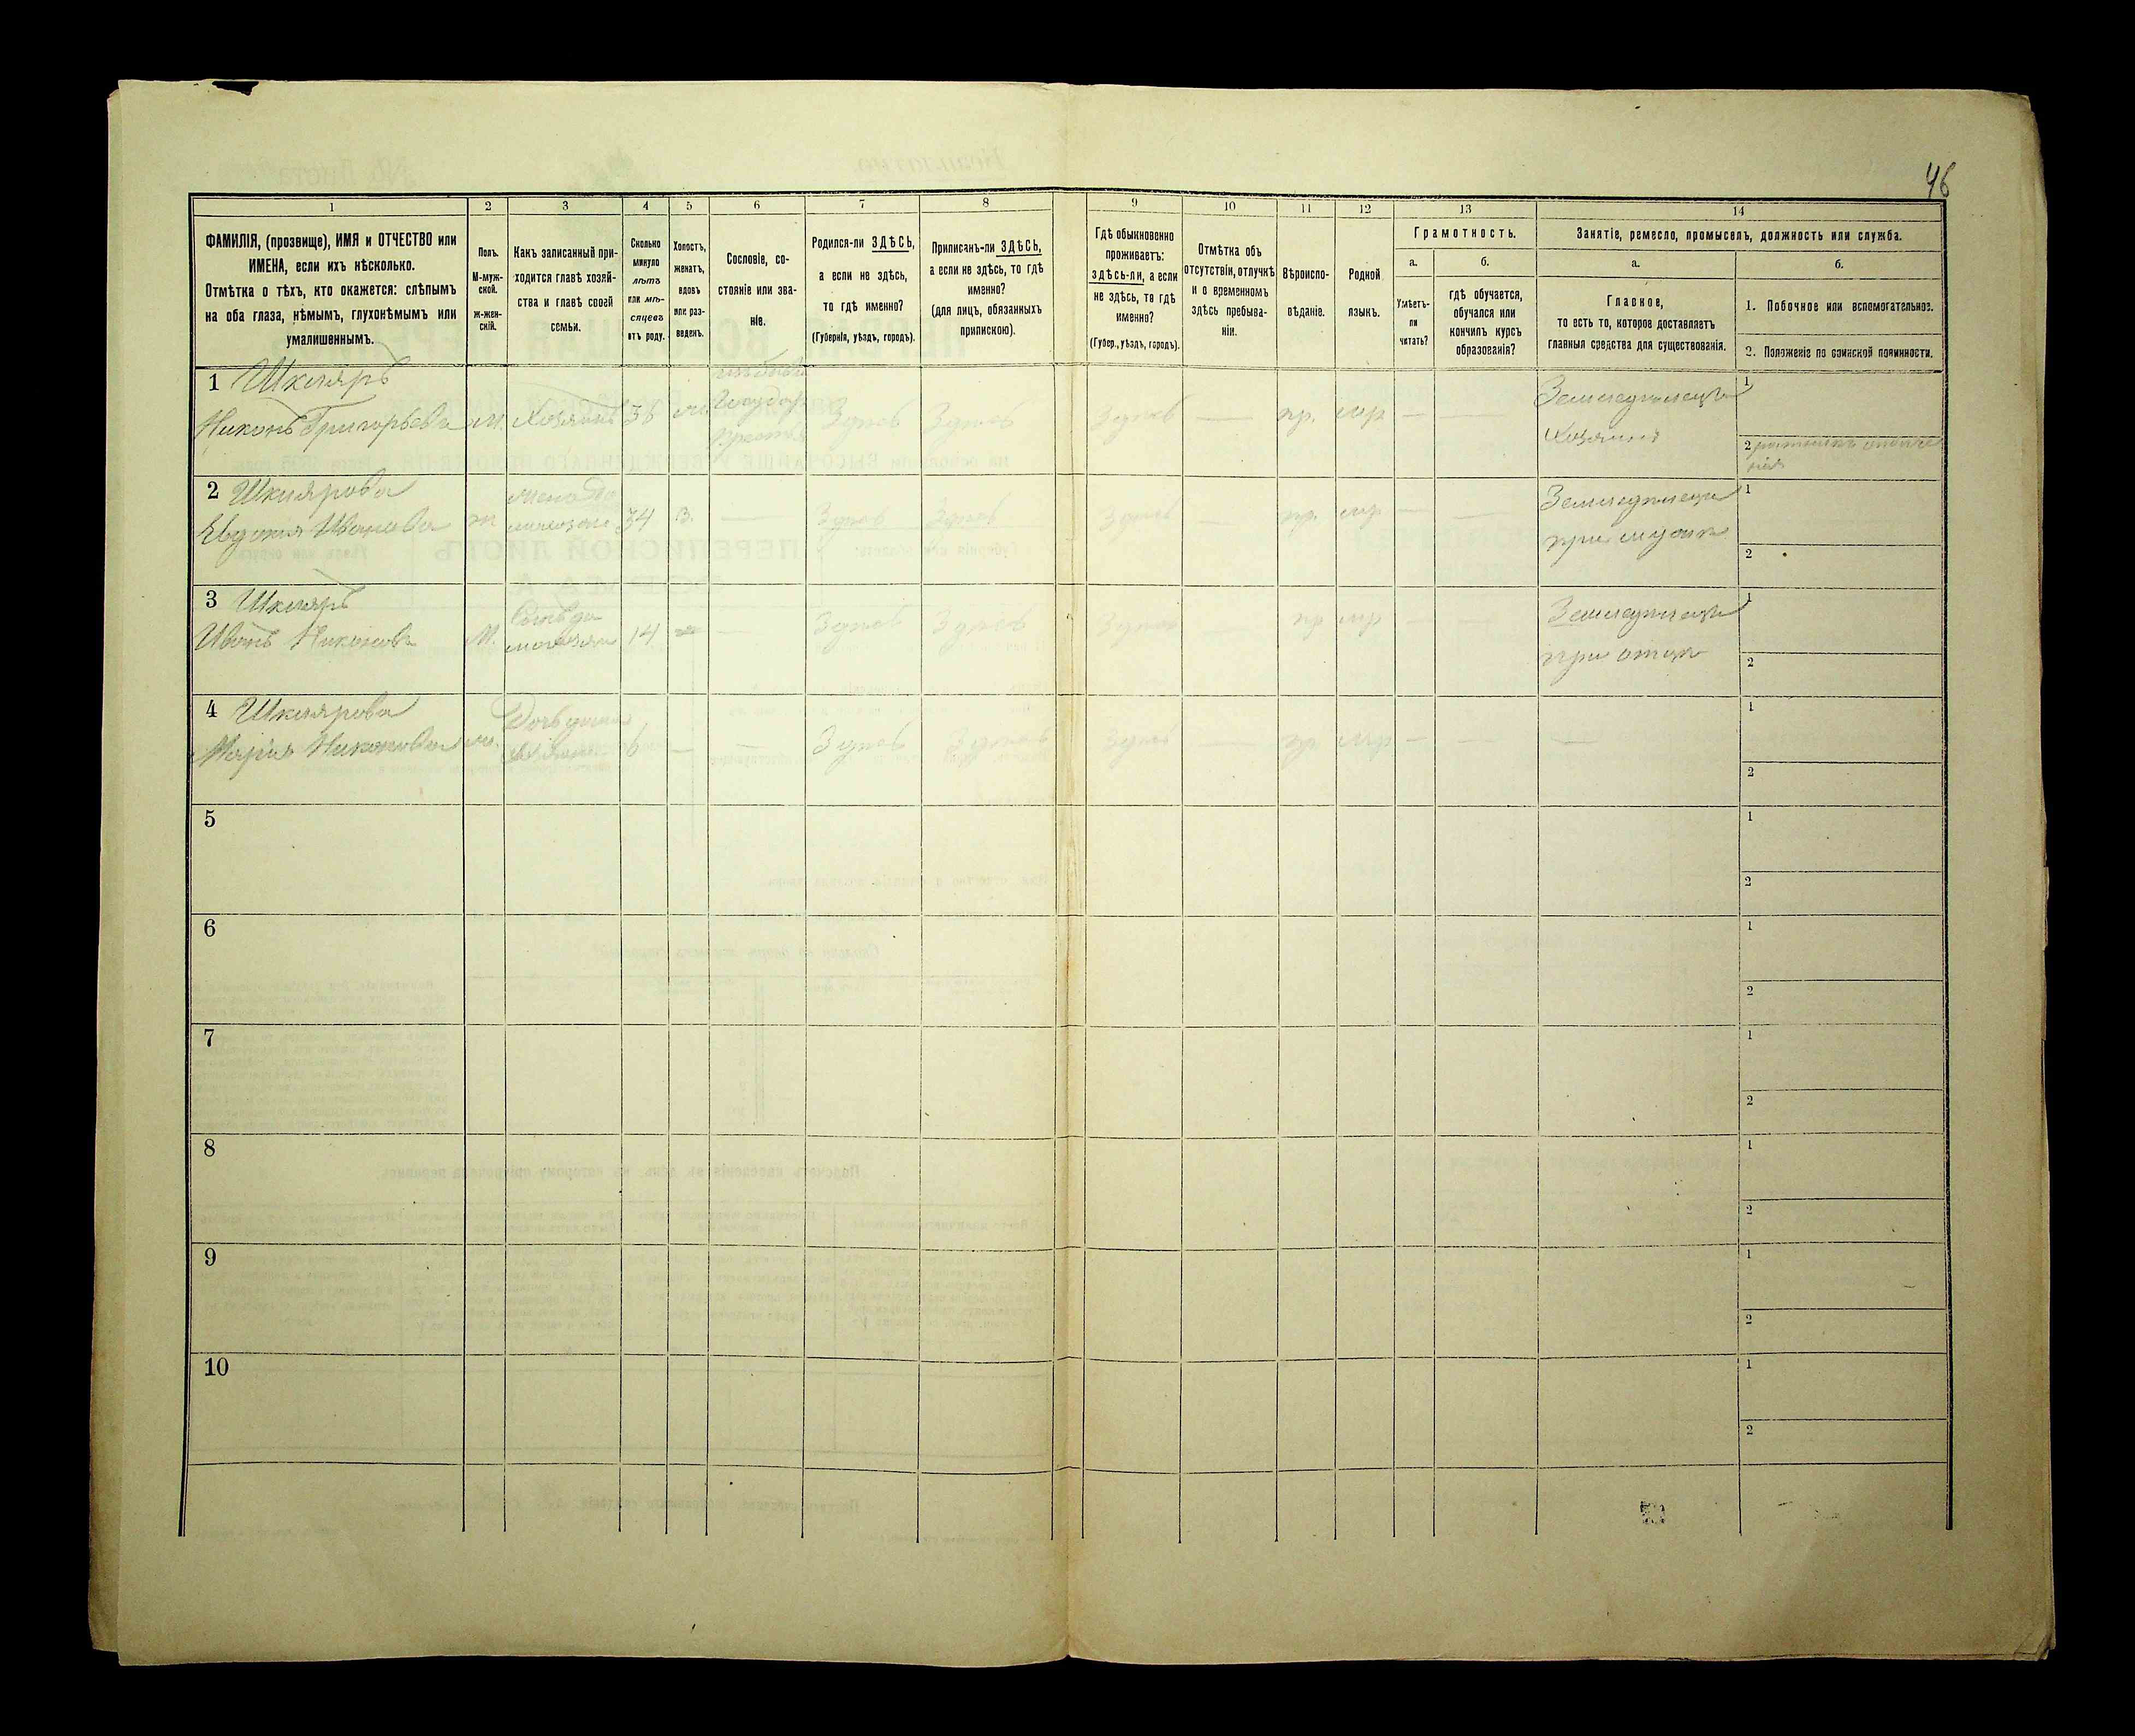 46
1
2
3
4
5
6
7
8
9
10
11
12
13
14
ФАМИЛІЯ, (прозвище), ИМЯ и ОТЧЕСТВО или
ИМЕНА, если ихъ нѣсколько.
Отмѣтка о тѣхъ, кто окажется: слѣпымъ
на оба глаза, нѣмымъ, глухонѣмымъ или
умалишеннымъ.
Полъ.
М-муж-
ской.
ж-жен-
скій.
Какъ записанный при-
ходится главѣ хозяй-
ства и главѣ своей
семьи.
Сколько
минуло
лѣтъ
или мѣ-
сяцевъ
отъ роду.
Холостъ,
женатъ,
вдовъ
или раз-
веденъ.
Сословіе, со-
стояніе или зва-
ніе.
Родился-ли ЗДѢСЬ,
а если не здѣсь,
то гдѣ именно?
(Губернія, уѣздъ, городъ).
Приписанъ-ли ЗДѢСЬ,
а если не здѣсь, то гдѣ
именно?
(для лицъ, обязанныхъ
припискою).
Гдѣ обыкновенно
проживаетъ:
здѣсь-ли, а если
не здѣсь, то гдѣ
именно?
(Губер., уѣздъ, городъ).
Отмѣтка объ
отсутствіи, отлучкѣ
и о временномъ
здѣсь пребыва-
ніи.
Вѣроиспо-
вѣданіе.
Родной
языкъ.
Грамотность.
а.
Умѣетъ-
ли
читать?
б.
гдѣ обучается,
обучался или
кончилъ курсъ
образованія?
Занятіе, ремесло, промыселъ, должность или служба.
а.
Главное,
то есть то, которое доставляетъ
главныя средства для существованія.
б.
1. Побочное или вспомогательное.
2. Положеніе по воинской повинности.
1 Шкляръ
Никонъ Григорьевъ М. Хозяинъ 36 Здѣсь Здѣсь Здѣсь — пр. мр — —
Земледѣлецъ
Хозяинъ
1
2 ратникъ ополче
нія
2 Шклярова
Евдокія Иванова ж жена 34 З. — Здѣсь Здѣсь Здѣсь — пр. мр — —
Земледѣлецъ
при мужѣ
1
2
3 Шкляръ
Иванъ Никоновъ М. Сынъ 14 — Здѣсь Здѣсь Здѣсь — пр мр — —
Земледѣлецъ
при отцѣ
1
2
4 Шклярова
Марія Никонова ж. Дочь 6 — — Здѣсь Здѣсь Здѣсь — пр мр — — —
1
2
5
1
2
6
1
2
7
1
2
8
1
2
9
1
2
10
1
2